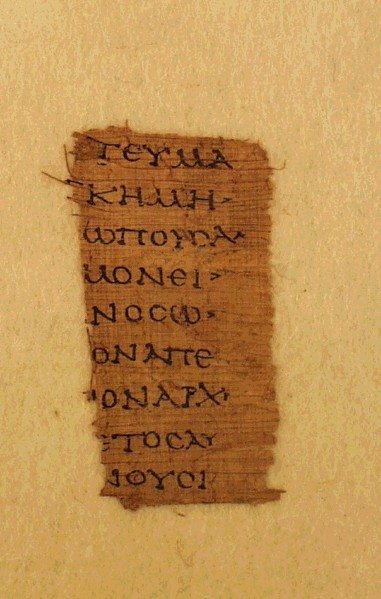 ΓΕΥΜΑ
ΚΗΜΗ>
ωΠΟΥΠΑ>
ΜΟΝΕΙ>
ΝΟϹω>
ΟΝΑΠΕ
ΟΝΑΡΧ
ΤΟϹΑΥ
ΙΟΥΟΙ